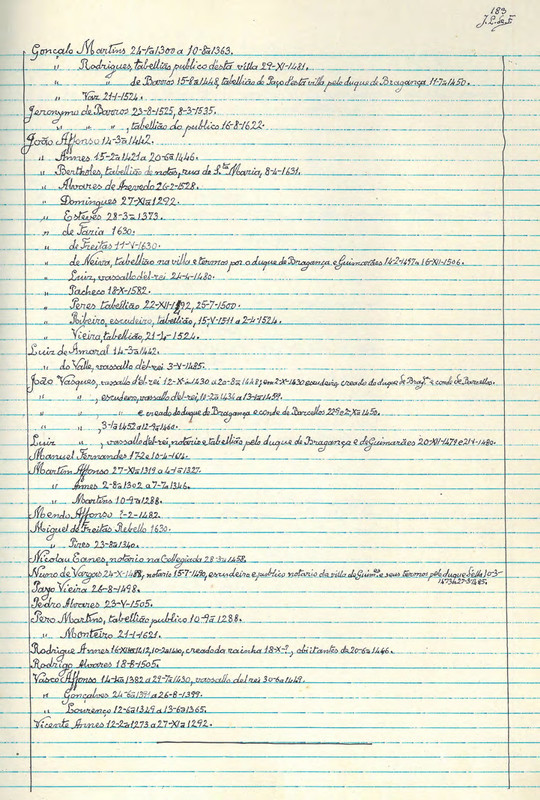 183
Gonçalo Martins 24-1ª1300 a 10-8ª1363.
" Rodrigues, tabellião publico desta villa 29-XI-1481.
" de Barros 15-8ª1448, tabellião do Paço desta villa pelo duque de Bragança 11-7ª1450.
" Vaz 21-1-1524.
Jeronymo de Barros 23-8-1525, 8-3-1535.
" " " , tabellião do publico 16-8-1622.
João Affonso 14-3ª1442.
" Annes 15-2ª1421 a 20-6ª1446.
" Bertholes, tabellião de notas, rua de S.ta Maria, 8-4-1631.
" Alvares de Azevedo 26-2-1528.
" Domingues 27-XIª1292.
" Esteves 28-3ª1373.
" de Faria 1630.
" de Freitas 11-V-1630.
" de Neiva, tabellião na villa e termos por o duque de Bragança e Guimarães 14-2-1497 a 16-XII-1506.
" Luiz, vassallo del-rei 24-4-1480.
" Pacheco 18-X-1582.
" Peres tabellião 22-XII-1492, 25-7-1500.
" Ribeiro, escudeiro, tabellião, 15-V-1511 a 2-4-1524.
" Vieira, tabellião, 21-4-1524.
Luiz de Amaral 14-3ª1442.
" do Valle, vassallo del-rei 3-V-1485.
João Vasques, vassallo d'el-rei 12-Xª1430 a 20-8ª1448; em 2-X-1430 escudeiro, creado do duque de Brag.ª e conde de Barcellos.
" " , escudeiro, vassallo del-rei, 10-2ª1434 a 13-1ª1459.
" " e creado do duque de Bragança e conde de Barcellos 22 9 02-Xª1450.
" " , 3-1ª1452 a 12-9ª1460.
Luiz " , vassallo del-rei, notario e tabellião pelo duque de Bragança e de Guimarães 20-XII-1471 e 21-1-1480.
Manuel Fernandes 17-2 e 10-4-1614.
Martim Affonso 27-XIª1319 a 4-1ª1327.
" Annes 2-8ª1302 a 7-7ª1346.
" Martins 10-9ª1288.
Mendo Affonso ?-2-1482.
Miguel de Freitas Rebello 1630.
" Pires 23-8ª1340.
Nicolau Eanes, notario na Collegiada 28-3ª1458.
Nuno de Vargas 24-X-1488, notario 15-7-1490, escudeiro e publico notario da villa de Guim.es e seus termos pelo duque della 10-3-
1473 e 27-3-1485.
Payo Vieira 26-8-1498.
Pedro Alvares 23-V-1505.
Pero Martins, tabellião, publico 10-9ª1288.
" Monteiro 21-1-1621.
Rodrigue Annes 16-XIIª1412, 10-2ª1400, creado da rainha 18-X-?, obiit antes de 20-6ª1446.
Rodrigo Alvares 18-8-1505.
Vasco Affonso 14-1ª1382 a 29-7ª1430, vassallo del rei 30-6ª1449.
" Gonçalves 24-6ª1391 a 26-8-1399.
" Lourenço 12-6ª1349 a 13-6ª1365.
Vicente Annes 12-2ª1273 a 27-XIª1292.